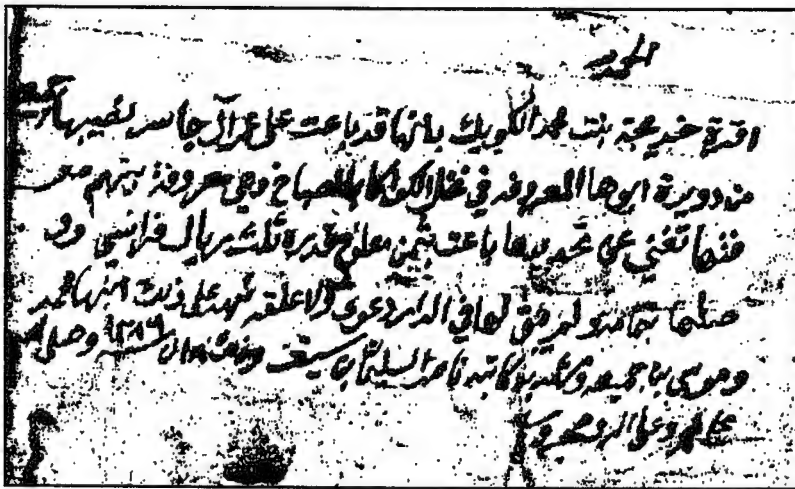 الحمد لله
اقرة خديجة بنت محمد الكويك بانها قد باعت على عمر آل جاسر نصيبها
من دويرة ابوها المعروفه في نخل وهي معروفة بينهم معر
فتها تغني عن تحديدها باعت بثمن معلوم قدره ثلث ريال فرانسي وو
صلها بتمامه ولم بقى لها في الدار دعوى ولا علقه شهد على ذلك ابنها محمد
وموسى وشهد به كاتبه ناصر السليمان بن سيف ١٢٨٦ وصلى الله
على محمد وعلى اله وصحبه وسلم